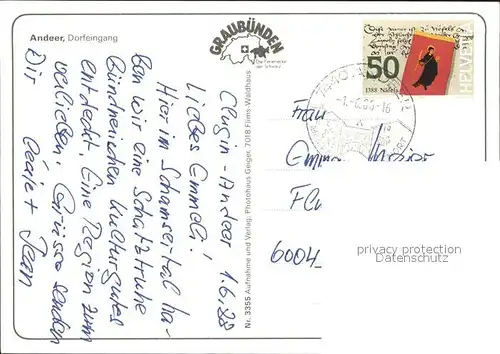 Andeer, Dorfeingang
GRAUBÜNDEN
Die Ferienecke
der Schweiz
Clugin-Andeer 1.6.88
Liebes Emmeli!
Hier im Schamsertal ha-
ben wir eine Schatztruhe
Bündnerischen Kulturgutes
entdeckt. Eine Region zum
verlieben! Grüsse senden
Dir
Jean
Nr. 3355 Aufnahme und Verlag: Photohaus Geiger, 7018 Flims-Waldhaus
HELVETIA
50
1388 Näfels
-1.-6.88-16
Frau
6004
privacy protection
Datenschutz